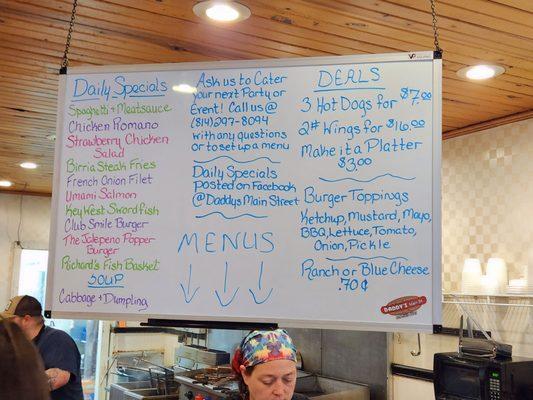 Daily Specials
Spaghetti + Meatsauce
Chicken Romano
Strawberry Chicken
Salad
Birria Steak Fries
French Onion Filet
Umami Salmon
Key West Swordfish
Club Smile Burger
The Jalepeno Popper
Burger
Richard's Fish Basket
SOUP
Cabbage + Dumpling
Ask us to Cater
your next Party or
Event! Call us @
(814) 297-8094
with any questions
or to set up a menu
Daily Specials
posted on Facebook
@Daddys Main Street
MENUS
DEALS
3 Hot Dogs for $7.00
2# Wings for $16.00
Make it a Platter
$3.00
Burger Toppings
Ketchup, Mustard, Mayo,
BBQ, Lettuce, Tomato,
Onion, Pickle
Ranch or Blue Cheese
.70¢
DADDY'S